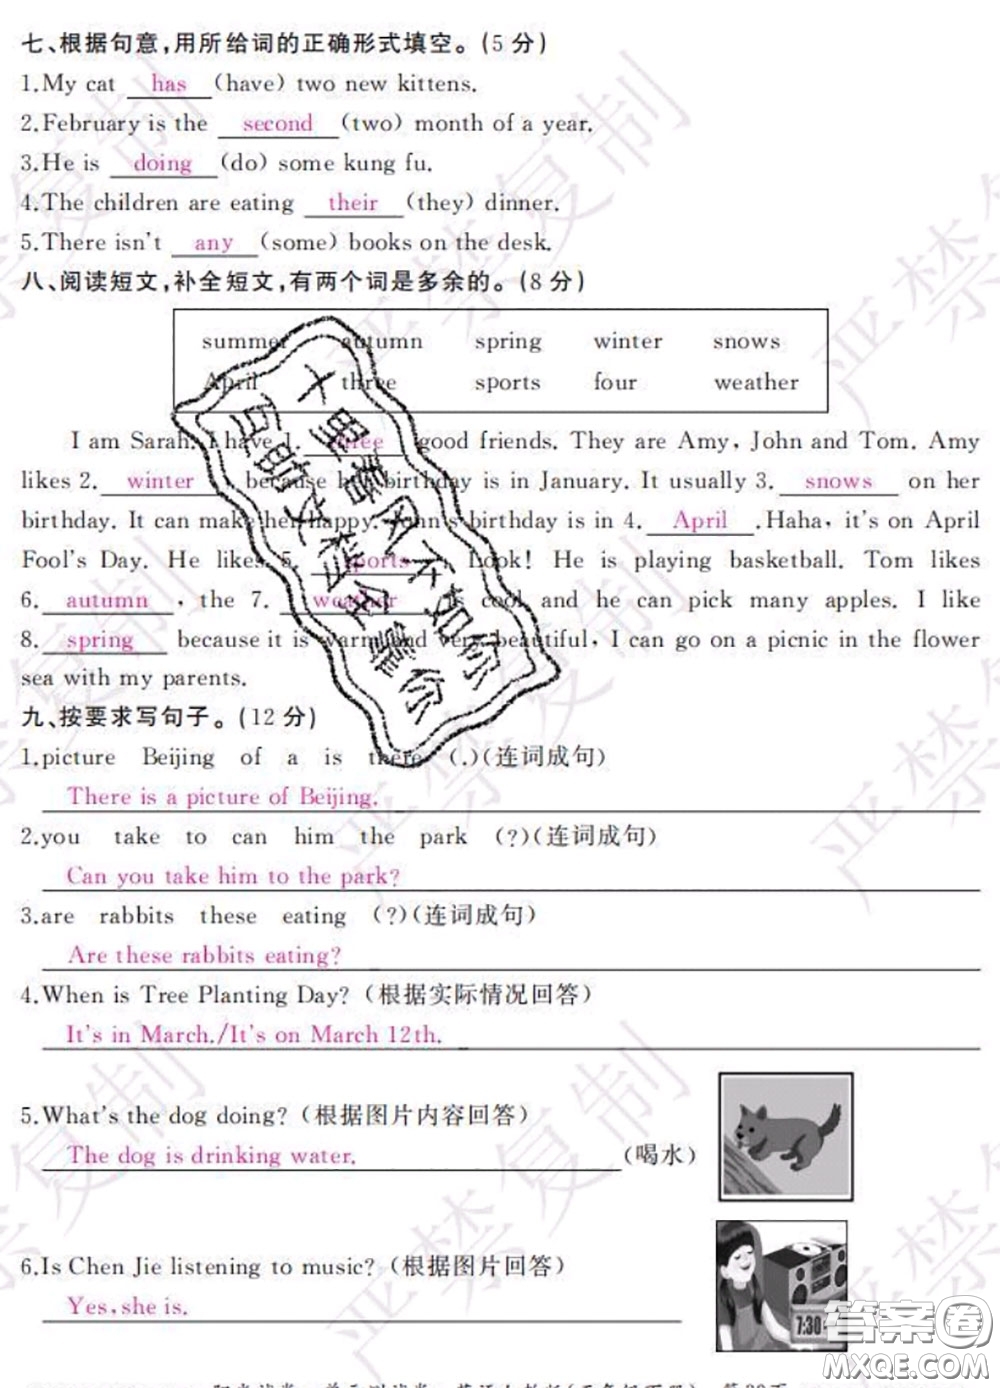 七、根据句意,用所给词的正确形式填空。(5分)
1.My cat has (have) two new kittens.
2.February is the second (two) month of a year.
3.He is doing (do) some kung fu.
4.The children are eating their (they) dinner.
5.There isn't any (some) books on the desk.
八、阅读短文,补全短文,有两个词是多余的。(8分)
summer autumn spring winter snows
April three sports four weather
I am Sarah. I have 1. three good friends. They are Amy, John and Tom. Amy
likes 2. winter , because her birthday is in January. It usually 3. snows on her
birthday. It can make her happy. John's birthday is in 4. April .Haha, it's on April
Fool's Day. He likes 5. sports . Look! He is playing basketball. Tom likes
6. autumn , the 7. weather is cool and he can pick many apples. I like
8. spring because it is warm and very beautiful, I can go on a picnic in the flower
sea with my parents.
九、按要求写句子。(12分)
1.picture Beijing of a is there (.)(连词成句)
There is a picture of Beijing.
2.you take to can him the park (?)(连词成句)
Can you take him to the park?
3.are rabbits these eating (?)(连词成句)
Are these rabbits eating?
4.When is Tree Planting Day? (根据实际情况回答)
It's in March./It's on March 12th.
5.What's the dog doing? (根据图片内容回答)
The dog is drinking water. (喝水)
6.Is Chen Jie listening to music? (根据图片回答)
Yes, she is.
7:30
严禁复制
十里春风不如你
互助文档全靠你
答案圈